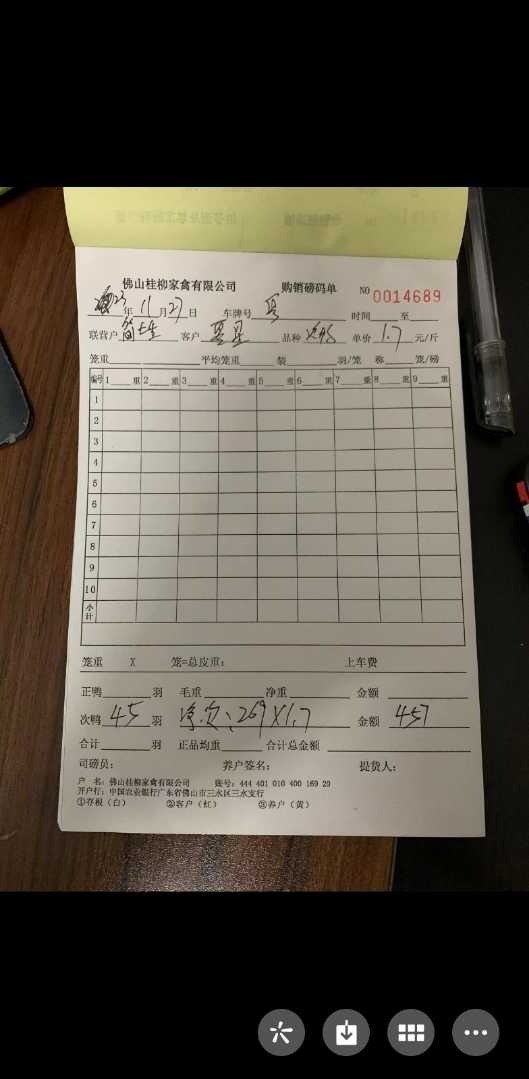 佛山桂柳家禽有限公司 购销磅码单 NO 0014689
23年 11月 27日 车牌号 时间 至
联营户 客户 品种 单价 1.7 元/斤
笼重 平均笼重 装 羽/笼 称 笼/磅
编号 1 重 2 重 3 重 4 重 5 重 6 重 7 重 8 重 9 重
1
2
3
4
5
6
7
8
9
10
小计
笼重 X 笼=总皮重: 上车费
正鸭 羽 毛重 净重 金额
次鸭 45 羽 净次: 269X1.7 金额 457
合计 羽 正品均重 合计总金额
司磅员: 养户签名: 提货人:
户 名: 佛山桂柳家禽有限公司 账号: 444 401 010 400 169 20
开户行: 中国农业银行广东省佛山市三水区三水支行
①存根（白） ②客户（红） ③养户（黄）